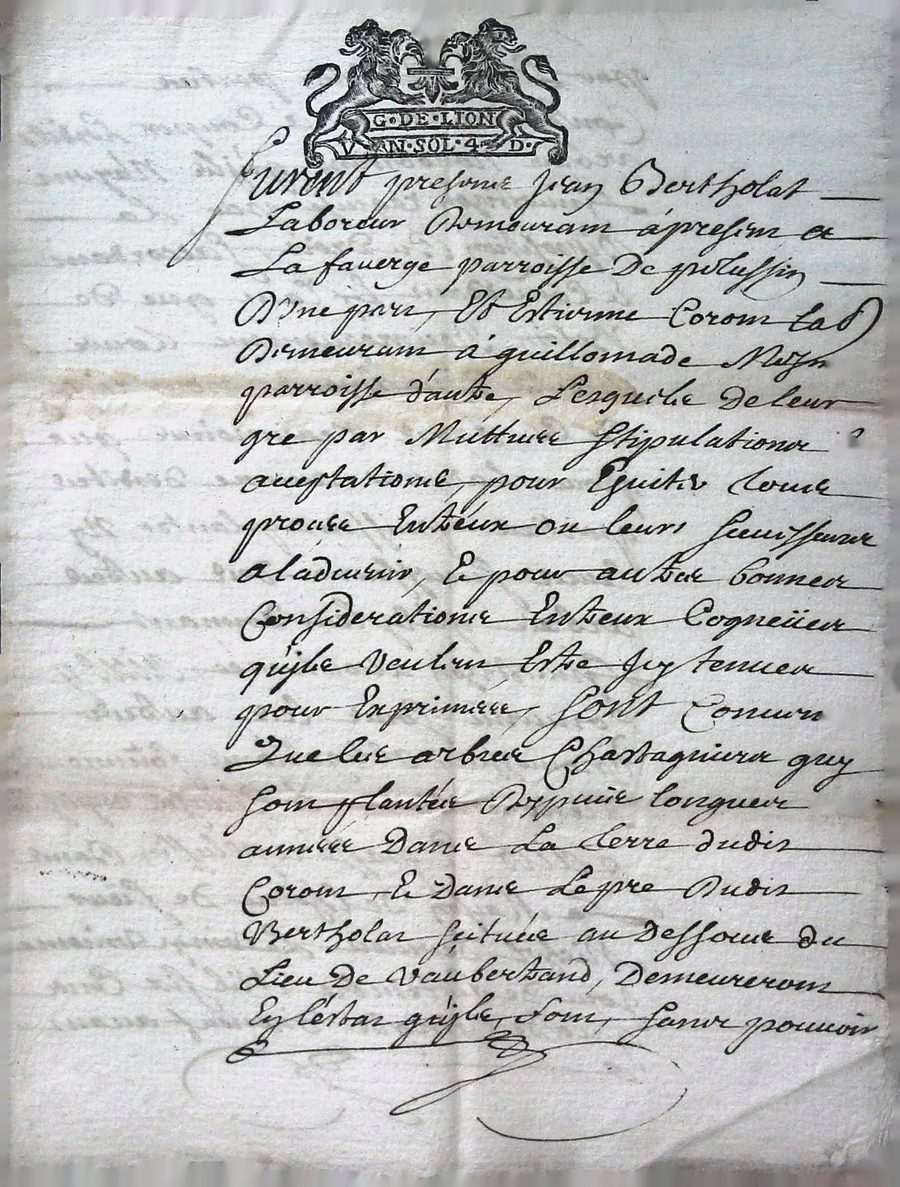 G·DE·LION
VN·SOL·4·D·
Furent presents Jean Bertholat
Laboreur Demeurant à present a
La faverge parroisse De pelussin
D'Une part, Et Estienne Coront Lab
Demeurant à guillomade Mesme
parroisse d'autre, Lesquels de leur
gre par Mutuees stipulations
acceptations, pour Eviter tous
proces Entreux ou leurs successeurs
aladvenir, Et pour autres bonnes
Considerations Entreux Cogneües
quyls Veulent Estre Icy tenues
pour Exprimees, Sont Convenu
Que les arbres Chastagniers quy
sont plantés Deppuis longues
années Dans La terre dudit
Coront, Et Dans Le pre Dudit
Bertholat scitués au Dessous du
Lieu De Vaubertrand, Demeureront
En lestat quyls, sont, sans pouvoir